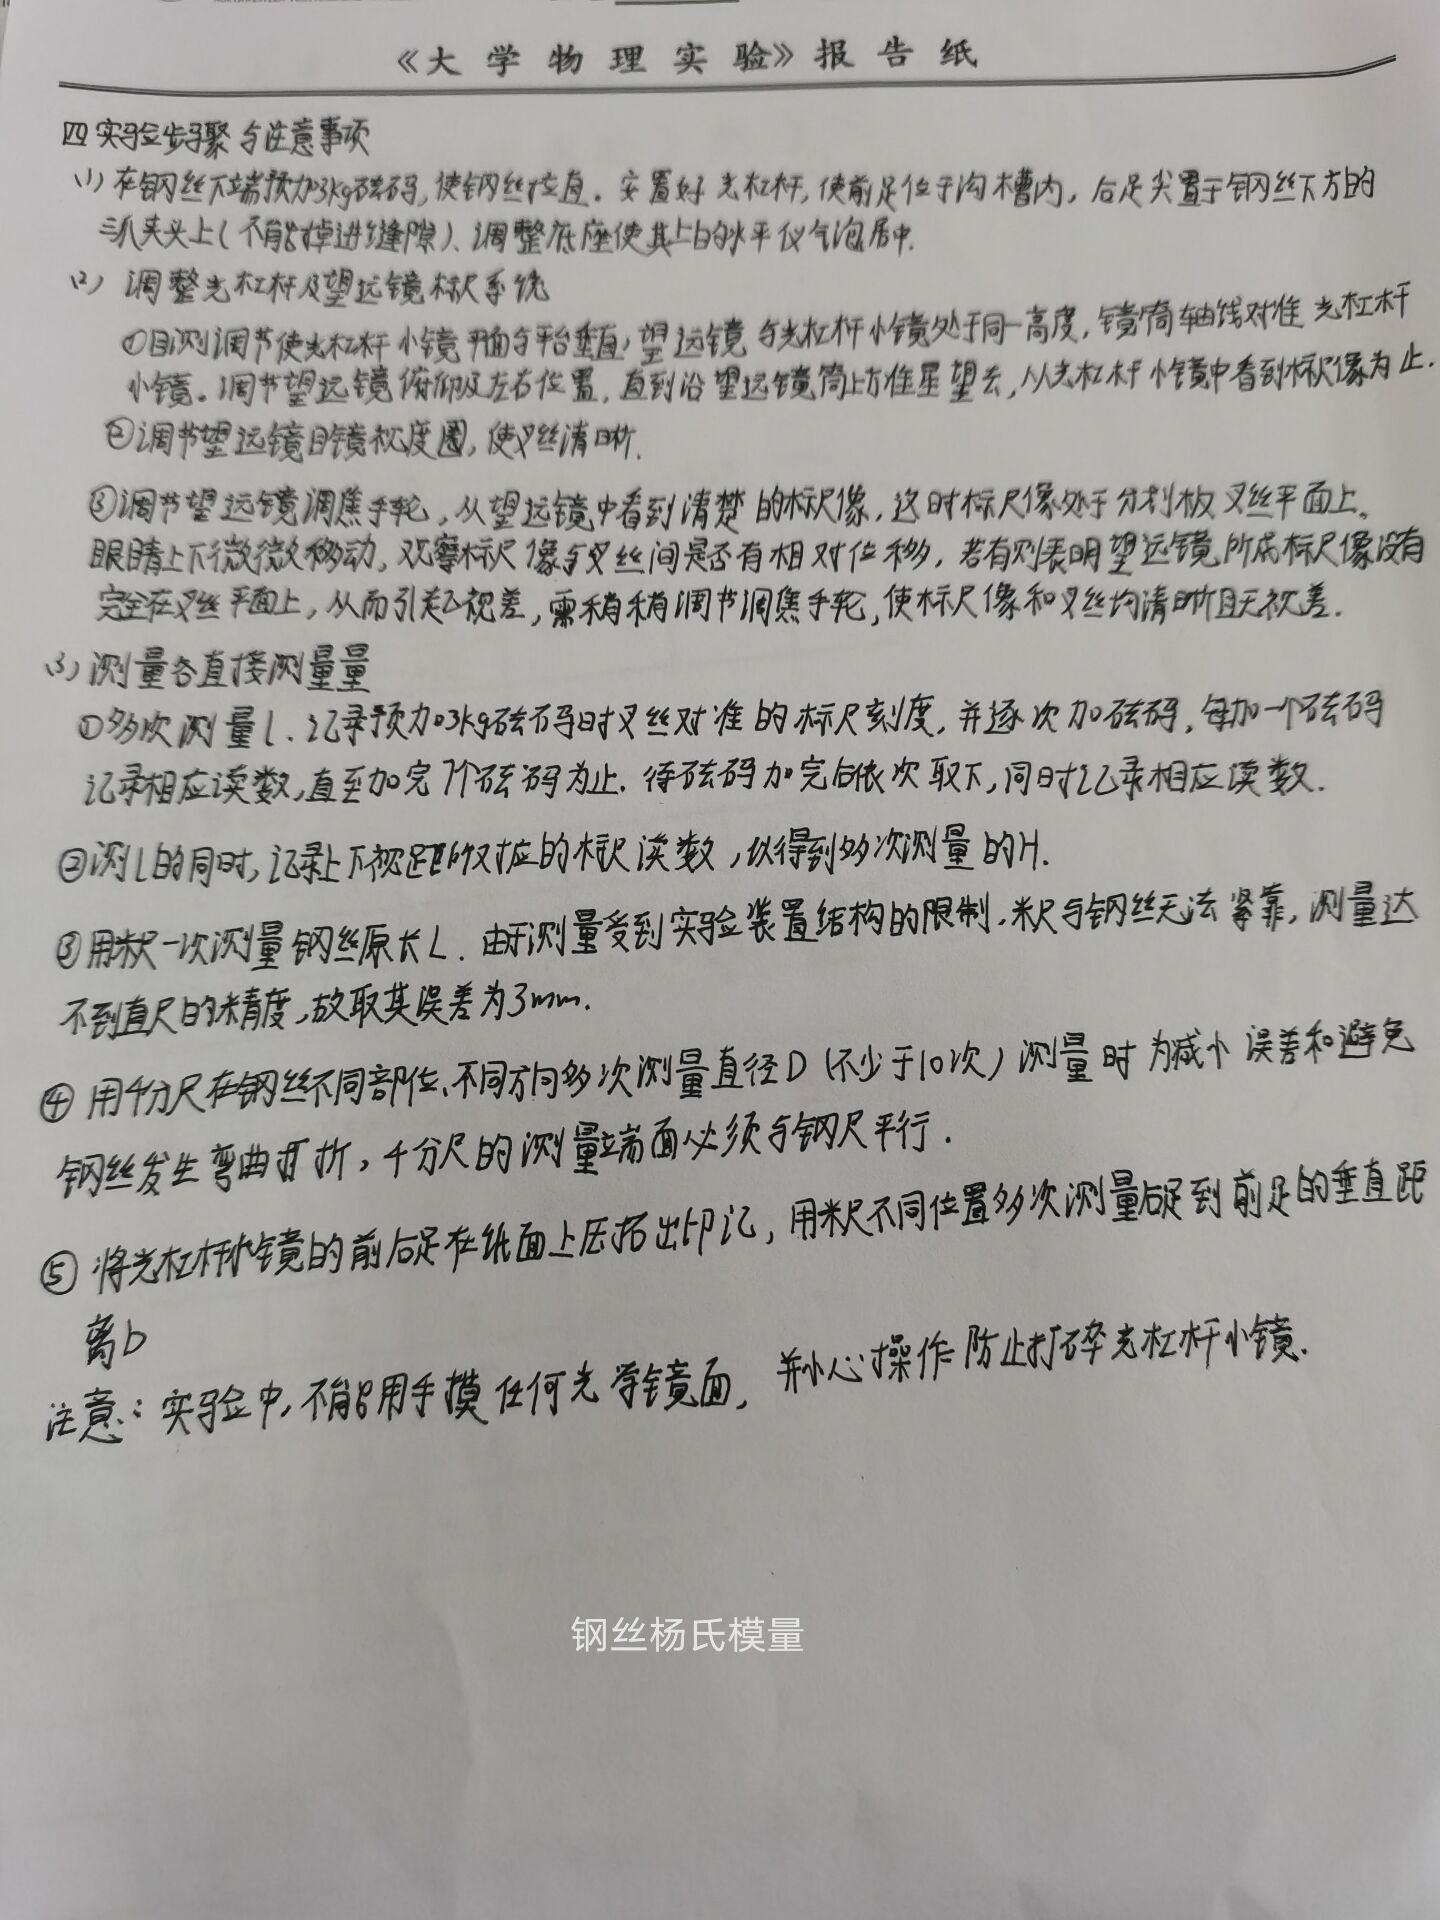 《大学物理实验》报告纸
四 实验步骤与注意事项
(1) 在钢丝下端预加3kg砝码,使钢丝拉直。安置好光杠杆,使前足位于沟槽内,后足尖置于钢丝下方的
三爪夹头上(不能掉进缝隙)、调整底座使其上的水平仪气泡居中.
(2) 调整光杠杆及望远镜标尺系统
①目测调节使光杠杆小镜平面与平台垂直,望远镜与光杠杆小镜处于同一高度,镜筒轴线对准光杠杆
小镜。调节望远镜俯仰及左右位置,直到沿望远镜筒上方准星望去,从光杠杆小镜中看到标尺像为止.
②调节望远镜目镜视度圈,使叉丝清晰.
③调节望远镜调焦手轮,从望远镜中看到清楚的标尺像,这时标尺像处于分划板叉丝平面上。
眼睛上下微微移动,观察标尺像与叉丝间是否有相对位移,若有则表明望远镜所成标尺像没有
完全在叉丝平面上,从而引起视差,需稍稍调节调焦手轮,使标尺像和叉丝均清晰且无视差.
(3) 测量各直接测量量
①多次测量l.记录预加3kg砝码时叉丝对准的标尺刻度,并逐次加砝码,每加一个砝码
记录相应读数,直至加完7个砝码为止.待砝码加完后依次取下,同时记录相应读数.
②测l的同时,记录上下视距所对应的标尺读数,以得到多次测量的H.
③用米尺一次测量钢丝原长L.由于测量受到实验装置结构的限制,米尺与钢丝无法紧靠,测量达
不到直尺的精度,故取其误差为3mm.
④用千分尺在钢丝不同部位、不同方向多次测量直径D(不少于10次)测量时为减小误差和避免
钢丝发生弯曲打折,千分尺的测量端面必须与钢尺平行.
⑤将光杠杆小镜的前后足在纸面上压拓出印记,用米尺不同位置多次测量后足到前足的垂直距
离b
注意:实验中,不能用手摸任何光学镜面,并小心操作防止打碎光杠杆小镜.
钢丝杨氏模量